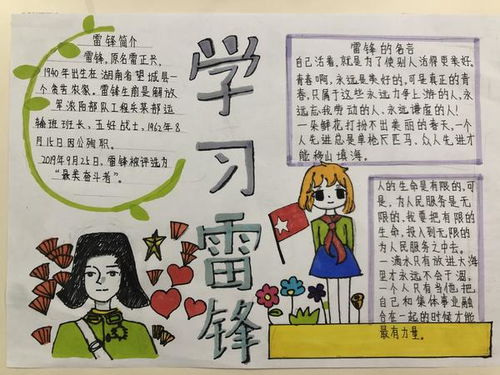 学习雷锋
雷锋简介
雷锋,原名雷正长,
1940年出生在湖南省望城县一
个贫农家。雷锋生前是解放
军沈阳部队工程兵某部运
输班班长、五好战士,1962年8
月15日因公殉职。
2019年9月25日,雷锋被评选为
“最美奋斗者”。
雷锋的名言
自己活着,就是为了使别人活得更美好。
青春啊,永远是美好的,可是真正的青
春,只属于这些永远力争上游的人,永
远忘我劳动的人、永远谦虚的人!
一朵鲜花打扮不出美丽的春天,一个
人先进总是单枪匹马,众人先进才
能移山填海。
人的生命是有限的,可
是,为人民服务是无
限的,我要把有限的
生命,投入到无限的
为人民服务之中去。
一滴水只有放进大海
里才永远不会干涸。
一个人只有当他把
自己和集体事业融
合在一起的时候才能
最有力量。